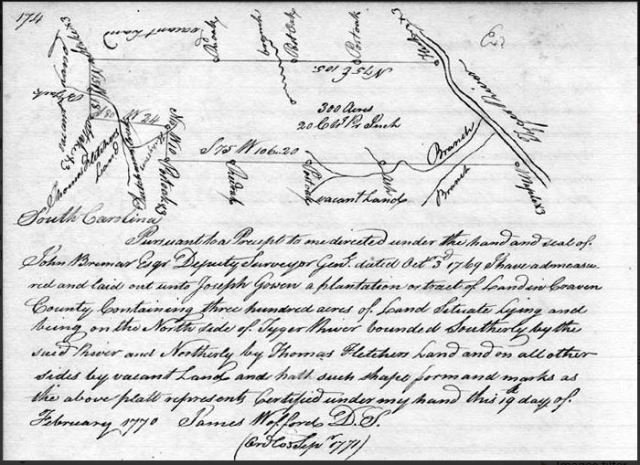 174
Vacant Land
Post oak
N 75 E 105
300 Acres
20 Chs Pr Inch
Tyger River
N 24
S 75 W 106.20
Thomas Fletchers
Land
Branch
Branch
vacant Land
South Carolina
Pursuant to a Precept to me directed under the hand and seal of
John Bremar Esqr Deputy Surveyor Genl. dated Octr 3d 1769 I have admeasu
red and laid out unto Joseph Gowen a plantation or tract of Land in Craven
County Containing three hundred acres of Land Situate lying and
being on the North side of Tyger River bounded Southerly by the
said River and Northerly by Thomas Fletchers Land and on all other
sides by vacant Land and hath such shape form and marks as
the above platt represents Certified under my hand this 19 day of
February 1770 James Wofford D. S.
(Ord Co 3 Sepr 1771)